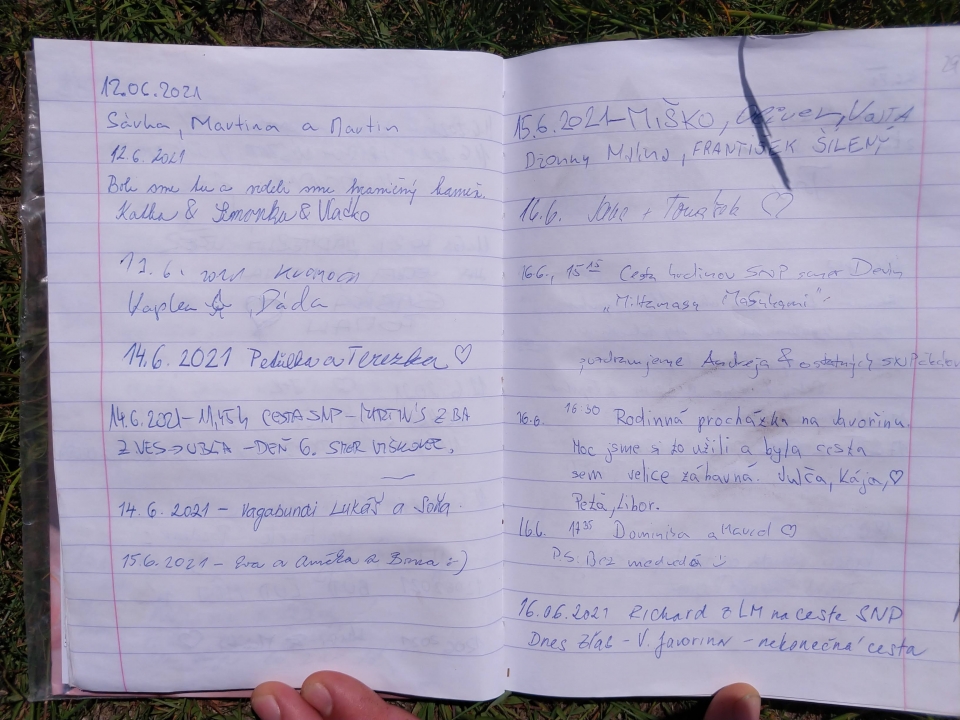 12.06.2021
Sávka, Martina a Martin
12.6. 2021
Boli sme tu a videli sme hraničný kameň.
Katka & Simonka & Vladko
6. 2021
Dáda
14.6. 2021 a Terezka ♡
14.6.2021 - 11,45 h CESTA SNP - MARTIN'S Z BA
Z VES → UBĽA - DEŇ 6.
14.6. 2021 - Vagabundi Lukáš a Soňa.
15.6.2021 - Eva a Anička a :-)
15.6.2021 - MIŠKO, Oliver, VOJTA
Džonny FRANTIŠEK ŠÍLENÝ
16.6. + ♡
16.6., 15 15 Cesta hrdinov SNP smer Devín
pozdravujeme Andreja & ostatných
16.6. 16 30 Rodinná procházka na Javořinu.
Moc jsme si to užili a byla cesta
sem velice zábavná. Julča, Kája, ♡
Péťa, Libor.
16.6. 17 35 Dominika a ♡
P.S: Bez medveďa
16.06.2021 Richard z LM na ceste SNP
Dnes - V. Javorina - nekonečná cesta